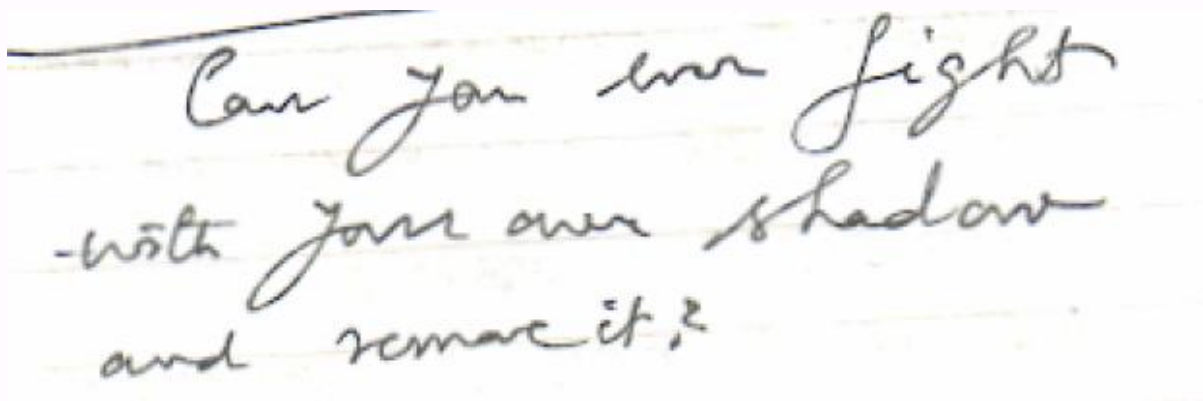 Can you ever fight
with your own shadow
and remove it?